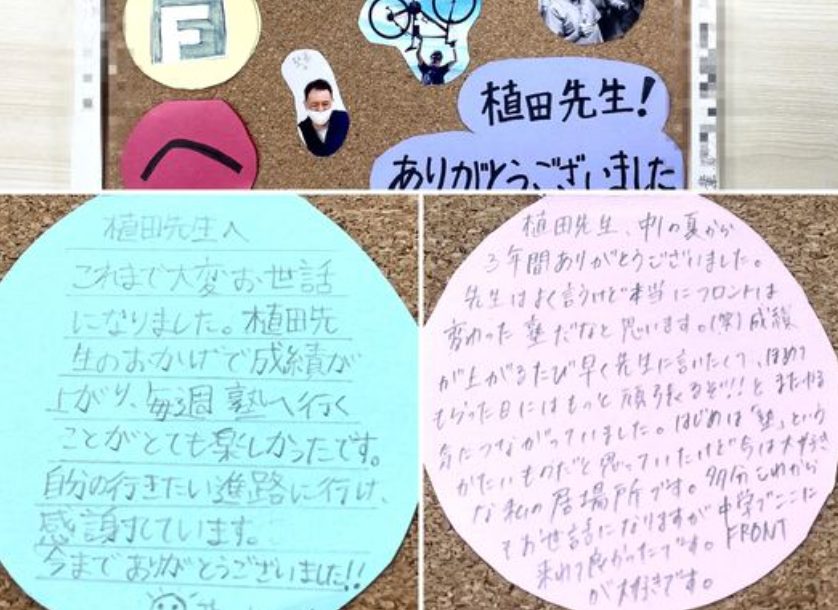 F
植田先生!
へ
ありがとうございました
植田先生へ
これまで大変お世話
になりました。植田先
生のおかげで成績が
上がり、毎週塾へ行く
ことがとても楽しかったです。
自分の行きたい進路に行け、
感謝しています。
今までありがとうございました!!
植田先生、中1の夏から
3年間ありがとうございました。
先生はよく言うけど本当にフロントは
変わった塾だなと思います。(笑)成績
が上がるたび早く先生に言いたくて、ほめて
もらった日にはもっと頑張るぞ!!とまたやる
気につながっていました。はじめは「塾」という
かたいものだと思っていたけど今は大好き
な私の居場所です。多分これから
もお世話になりますが中学でここに
来れて良かったです。FRONT
が大好きです。